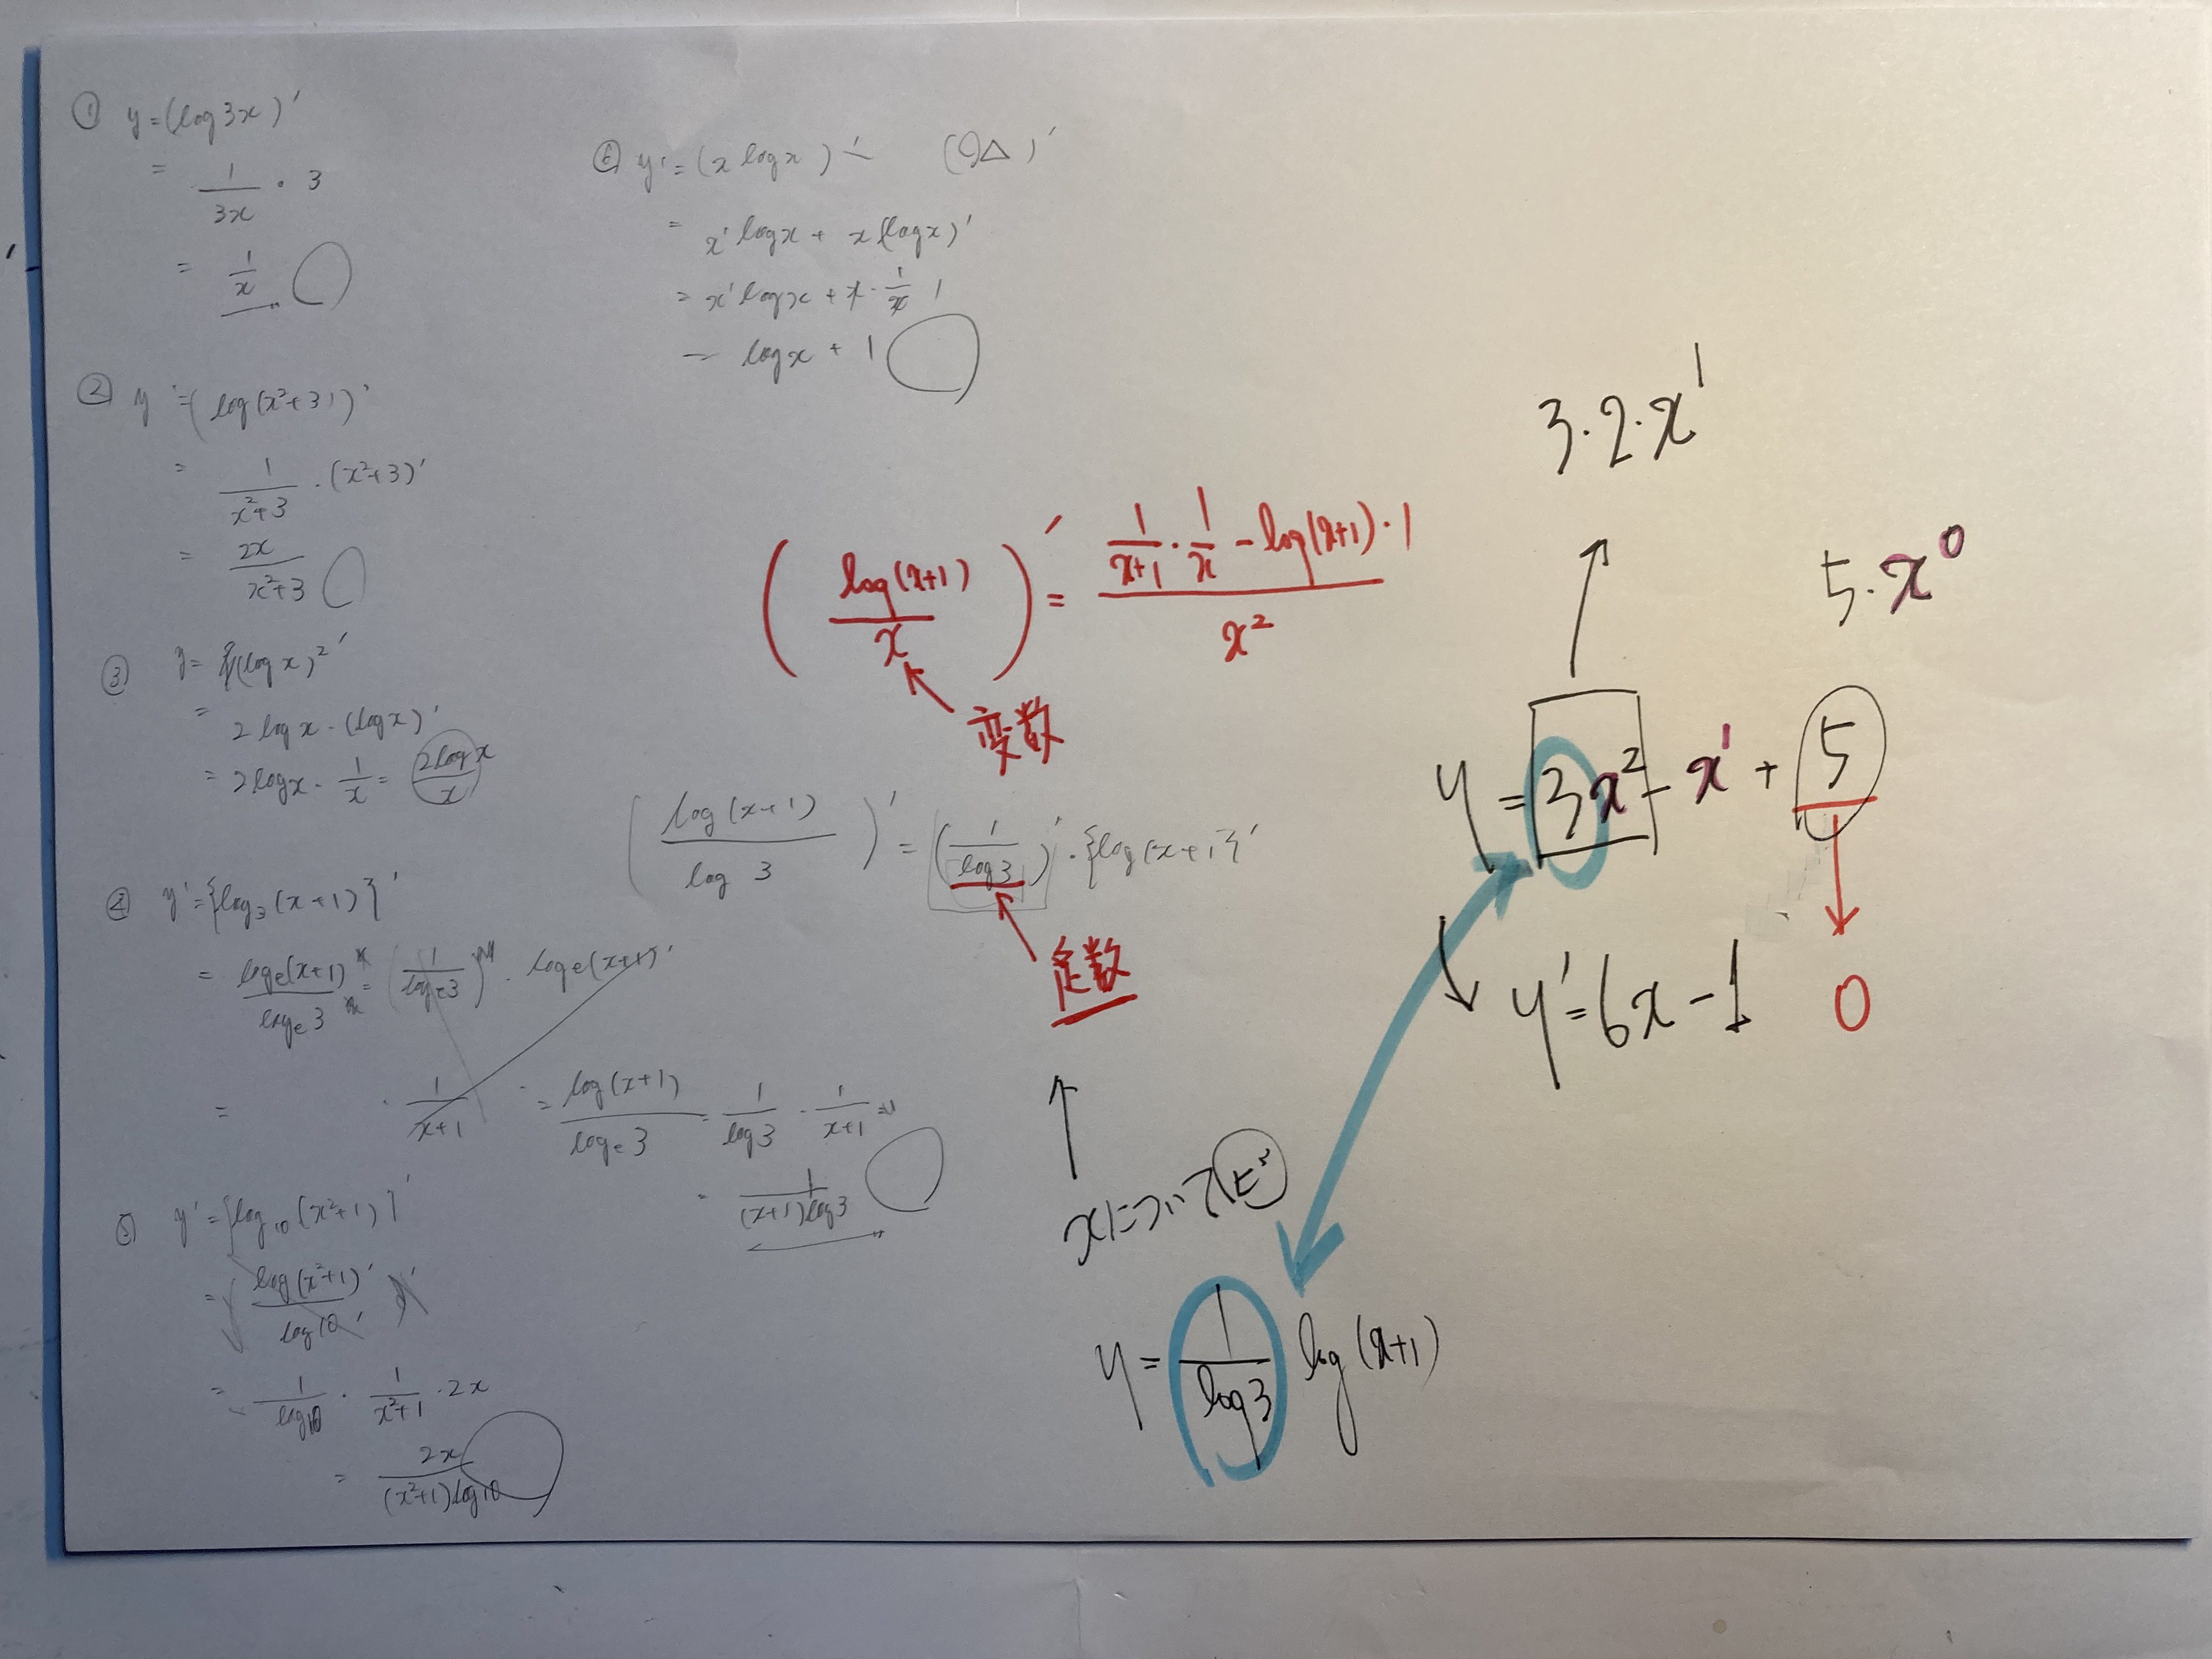 ① y=(log3x)'
= 1/3x · 3
= 1/x
② y'=(log(x²+3))'
= 1/x²+3 · (x²+3)'
= 2x/x²+3
③ y={(logx)²}'
= 2logx · (logx)'
= 2logx · 1/x = 2logx/x
④ y'={log₃(x+1)}'
= logₑ(x+1)/logₑ3 = (1/logₑ3) · logₑ(x+1)'
= · 1/x+1
= log(x+1)/logₑ3 = 1/log3 · 1/x+1 =
= 1/(x+1)log3
⑤ y'={log₁₀(x²+1)}'
= log(x²+1)'/log10'
= 1/log10 · 1/x²+1 · 2x
= 2x/(x²+1)log10
⑥ y'=(x logx)' (○△)'
= x'logx + x(logx)'
= x'logx + x · 1/x 1
= logx + 1
(log(x+1)/x)' = 1/x+1 · 1/x - log(x+1)·1/x²
変数
(log(x+1)/log3)' = (1/log3)' · {log(x+1)}'
定数
xについて
y = 1/log3 log(x+1)
3·2·x¹
5·x⁰
y = 3x² - x¹ + 5
y' = 6x - 1 0